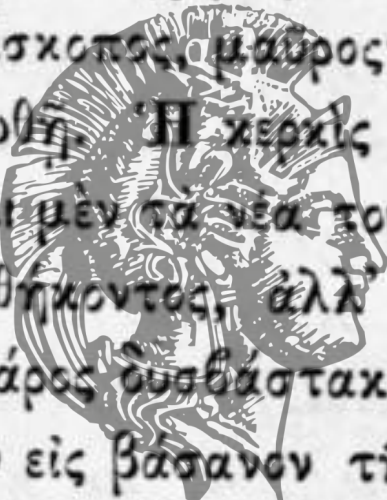 σκοπος, μαῦρος
ρθή. Ἡ κερκὶς
μὲν τὰ νέα το
θήκοντος, ἀλλ'
άρος δυσβάστακ
εἰς βάσανον τ